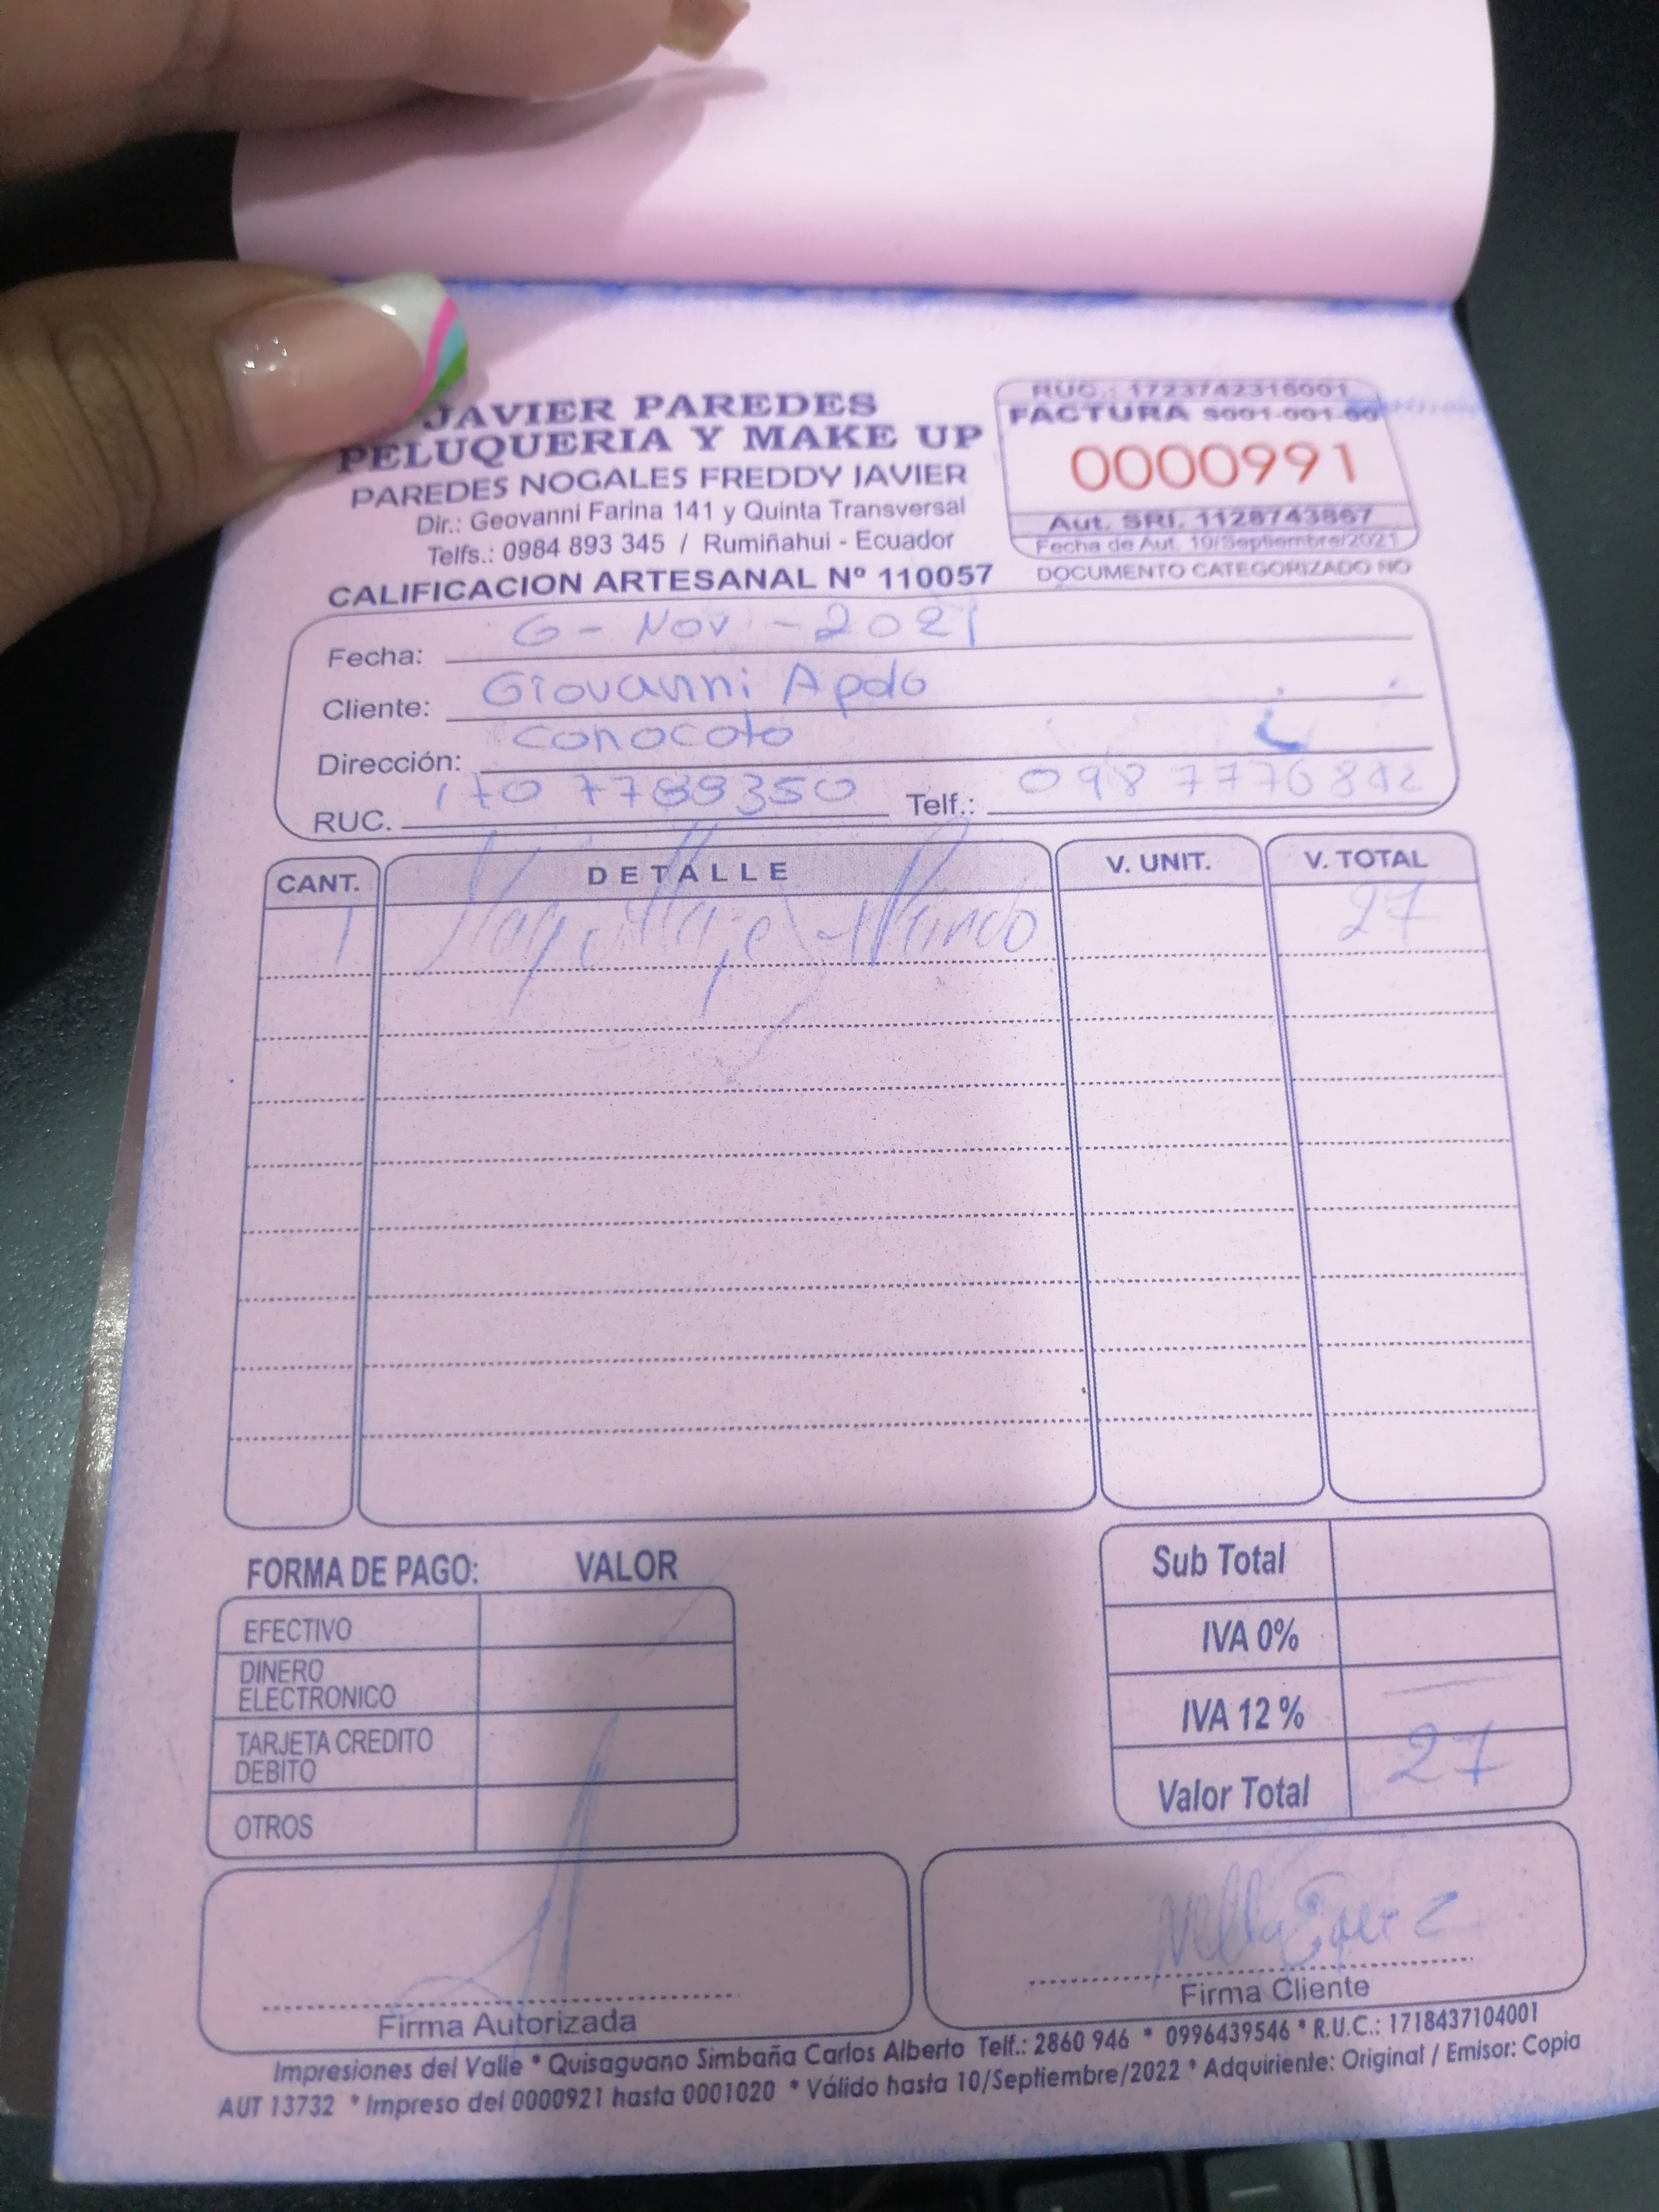 JAVIER PAREDES
PELUQUERIA Y MAKE UP
PAREDES NOGALES FREDDY JAVIER
Dir.: Geovanni Farina 141 y Quinta Transversal
Telfs.: 0984 893 345 / Rumiñahui - Ecuador
CALIFICACION ARTESANAL Nº 110057
RUC.: 1723742316001
FACTURA S001-001-00
0000991
Aut. SRI. 1128743867
Fecha de Aut. 10/Septiembre/2021
DOCUMENTO CATEGORIZADO NO
Fecha: 6 - Nov - 2021
Cliente: Giovanni Apolo
Dirección: Conocoto
RUC. Telf.:
CANT. DETALLE V. UNIT. V. TOTAL
1 Maquillaje 27
FORMA DE PAGO: VALOR
EFECTIVO
DINERO
ELECTRONICO
TARJETA CREDITO
DEBITO
OTROS
Sub Total
IVA 0%
IVA 12 %
Valor Total 27
Firma Autorizada
Firma Cliente
Impresiones del Valle * Quisaguano Simbaña Carlos Alberto Telf.: 2860 946 * 0996439546 * R.U.C.: 1718437104001
AUT 13732 * Impreso del 0000921 hasta 0001020 * Válido hasta 10/Septiembre/2022 * Adquiriente: Original / Emisor: Copia